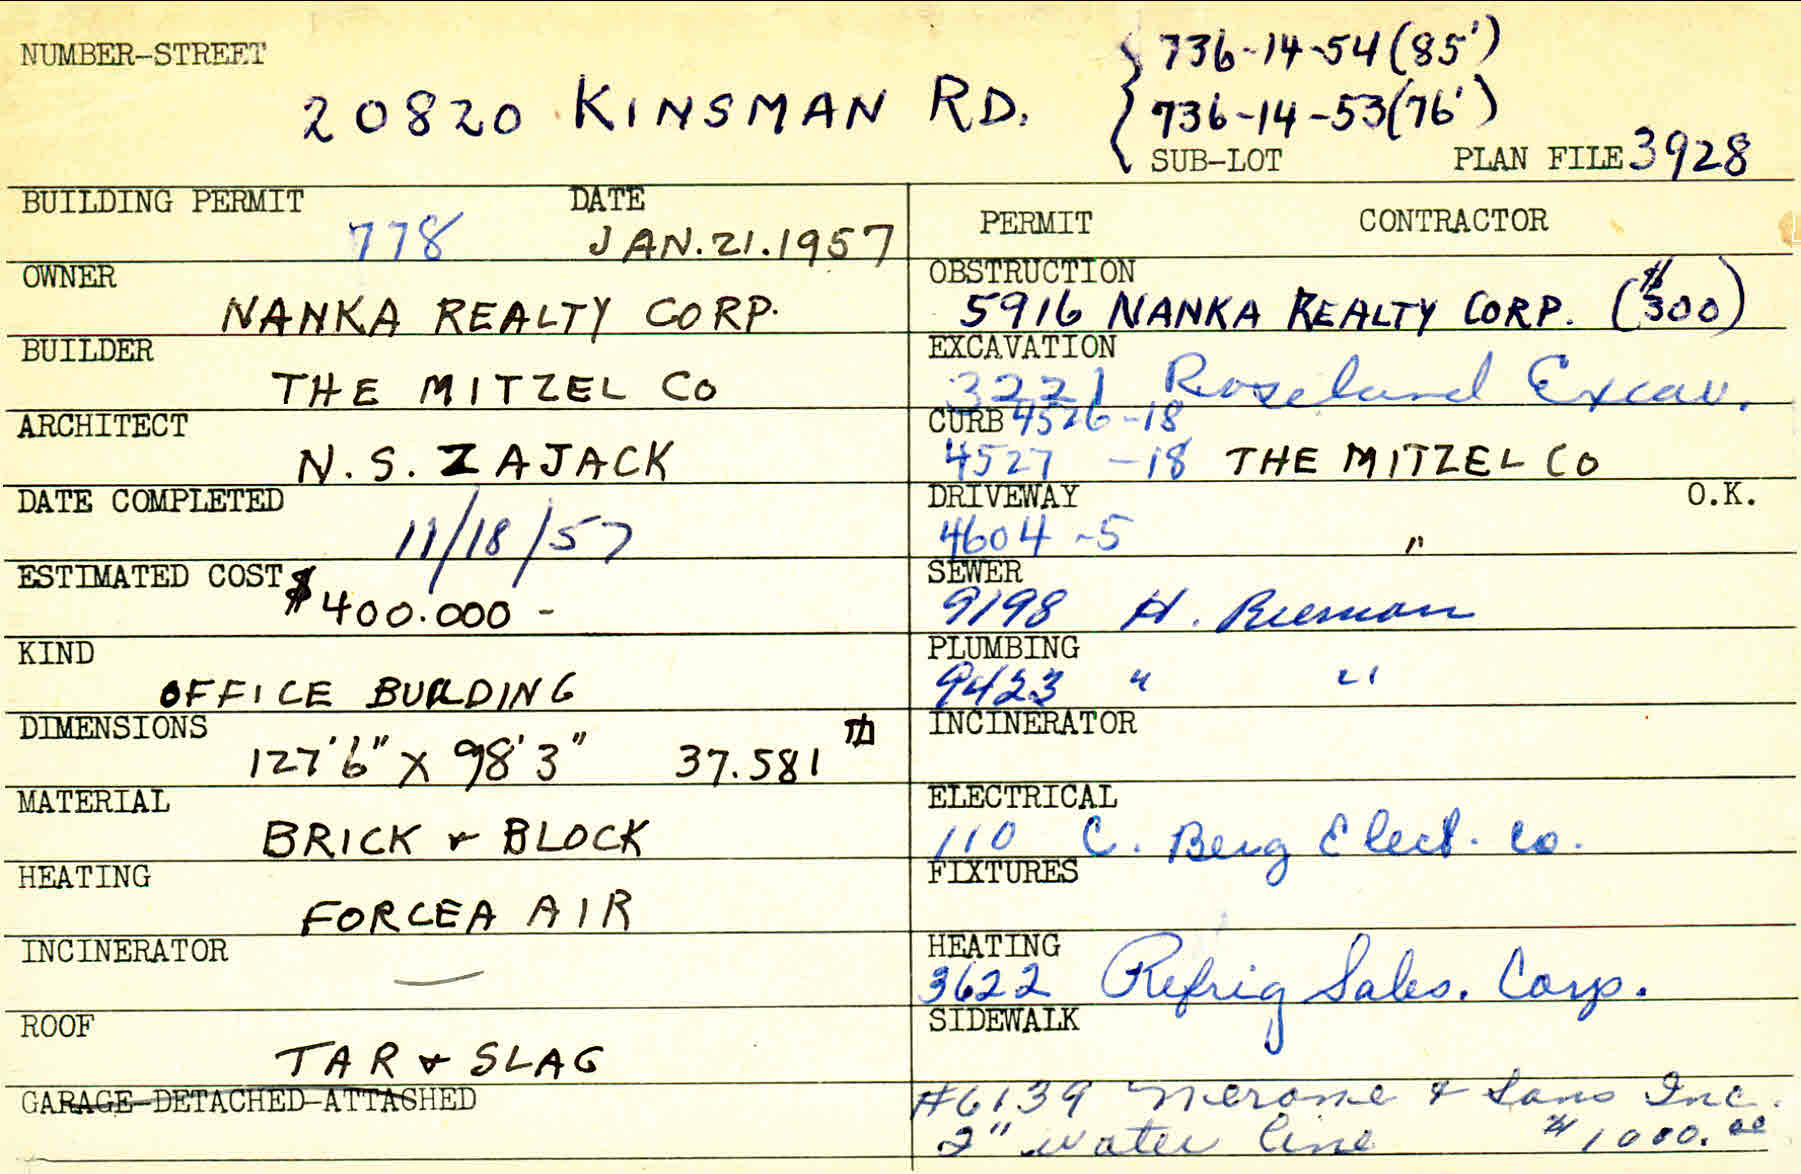 NUMBER-STREET
20820 KINSMAN RD.
736-14-54 (85')
736-14-53 (76')
SUB-LOT PLAN FILE 3928
BUILDING PERMIT 778 DATE JAN. 21. 1957
OWNER NANKA REALTY CORP.
BUILDER THE MITZEL CO
ARCHITECT N. S. ZAJACK
DATE COMPLETED 11/18/57
ESTIMATED COST $400.000 -
KIND OFFICE BUILDING
DIMENSIONS 127'6" X 98'3" 37.581
MATERIAL BRICK & BLOCK
HEATING FORCEA AIR
INCINERATOR —
ROOF TAR & SLAG
GARAGE-DETACHED-ATTASHED
PERMIT CONTRACTOR
OBSTRUCTION
5916 NANKA REALTY CORP. ($300)
EXCAVATION
3221 Roseland Excav.
CURB 4526-18
4527 -18 THE MITZEL CO
DRIVEWAY O.K.
4604 -5 "
SEWER
9198 H.
PLUMBING
9423 " "
INCINERATOR
ELECTRICAL
110 C. Berg Elect. Co.
FIXTURES
HEATING
3622 Refrig Sales. Corp.
SIDEWALK
#6139 & Sons Inc.
2" water line $1000.00